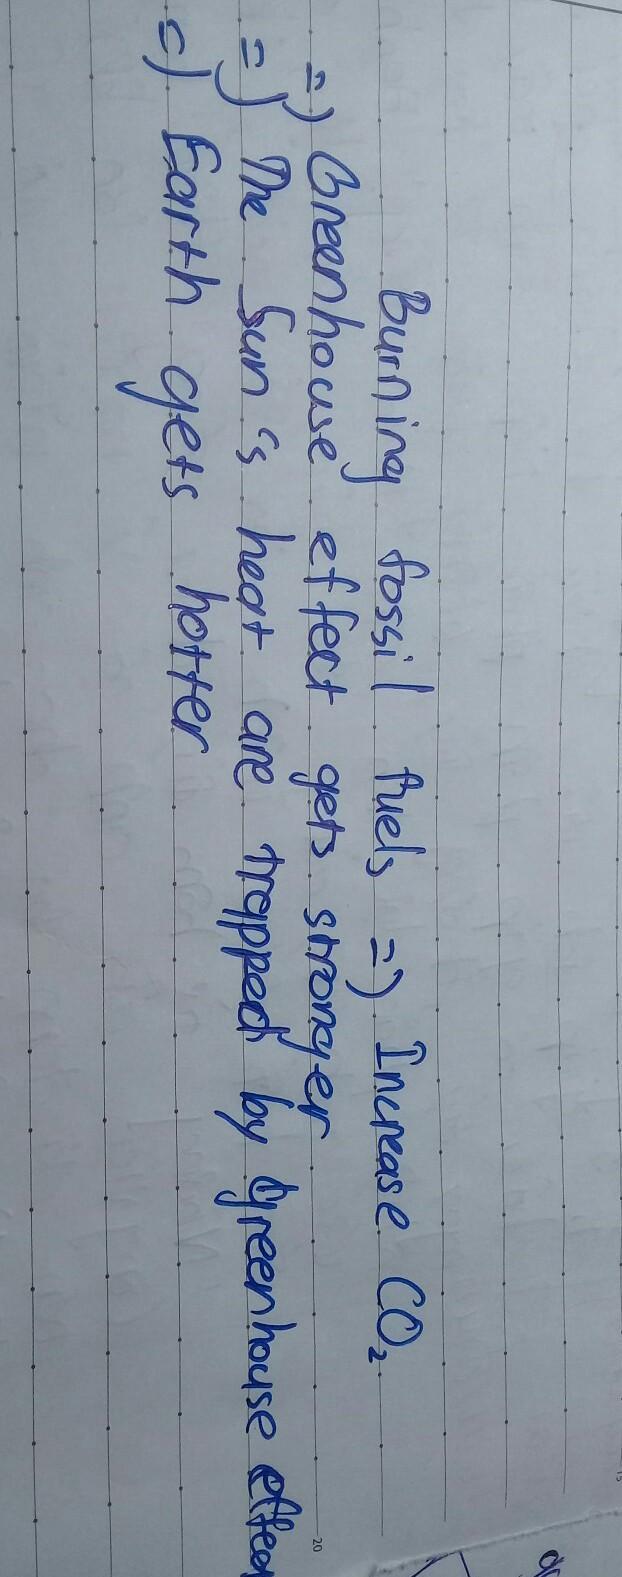 Burning fossil fuels => Increase CO₂
=> Greenhouse effect gets stronger
=> The Sun's heat are trapped by Greenhouse effect
=> Earth gets hotter
20